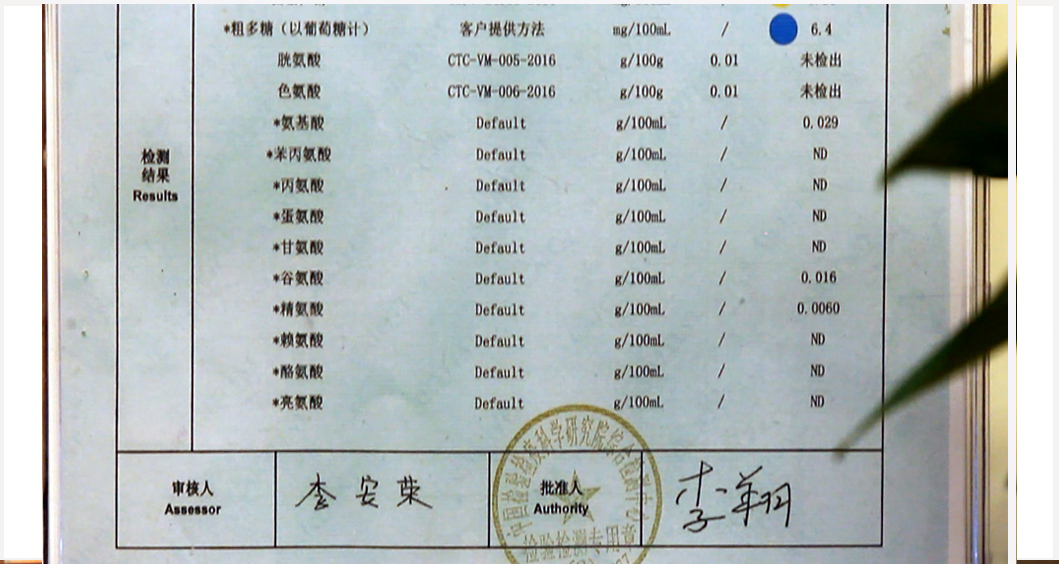 *粗多糖（以葡萄糖计） 客户提供方法 mg/100mL / 6.4
胱氨酸 CTC-VM-005-2016 g/100g 0.01 未检出
色氨酸 CTC-VM-006-2016 g/100g 0.01 未检出
*氨基酸 Default g/100mL / 0.029
*苯丙氨酸 Default g/100mL / ND
*丙氨酸 Default g/100mL / ND
检测
结果
Results
*蛋氨酸 Default g/100mL / ND
*甘氨酸 Default g/100mL / ND
*谷氨酸 Default g/100mL / 0.016
*精氨酸 Default g/100mL / 0.0060
*赖氨酸 Default g/100mL / ND
*酪氨酸 Default g/100mL / ND
*亮氨酸 Default g/100mL / ND
审核人
Assessor
李安荣
批准人
Authority
李翔
中国检验检疫科学研究院综合检测中心
检验检测专用章